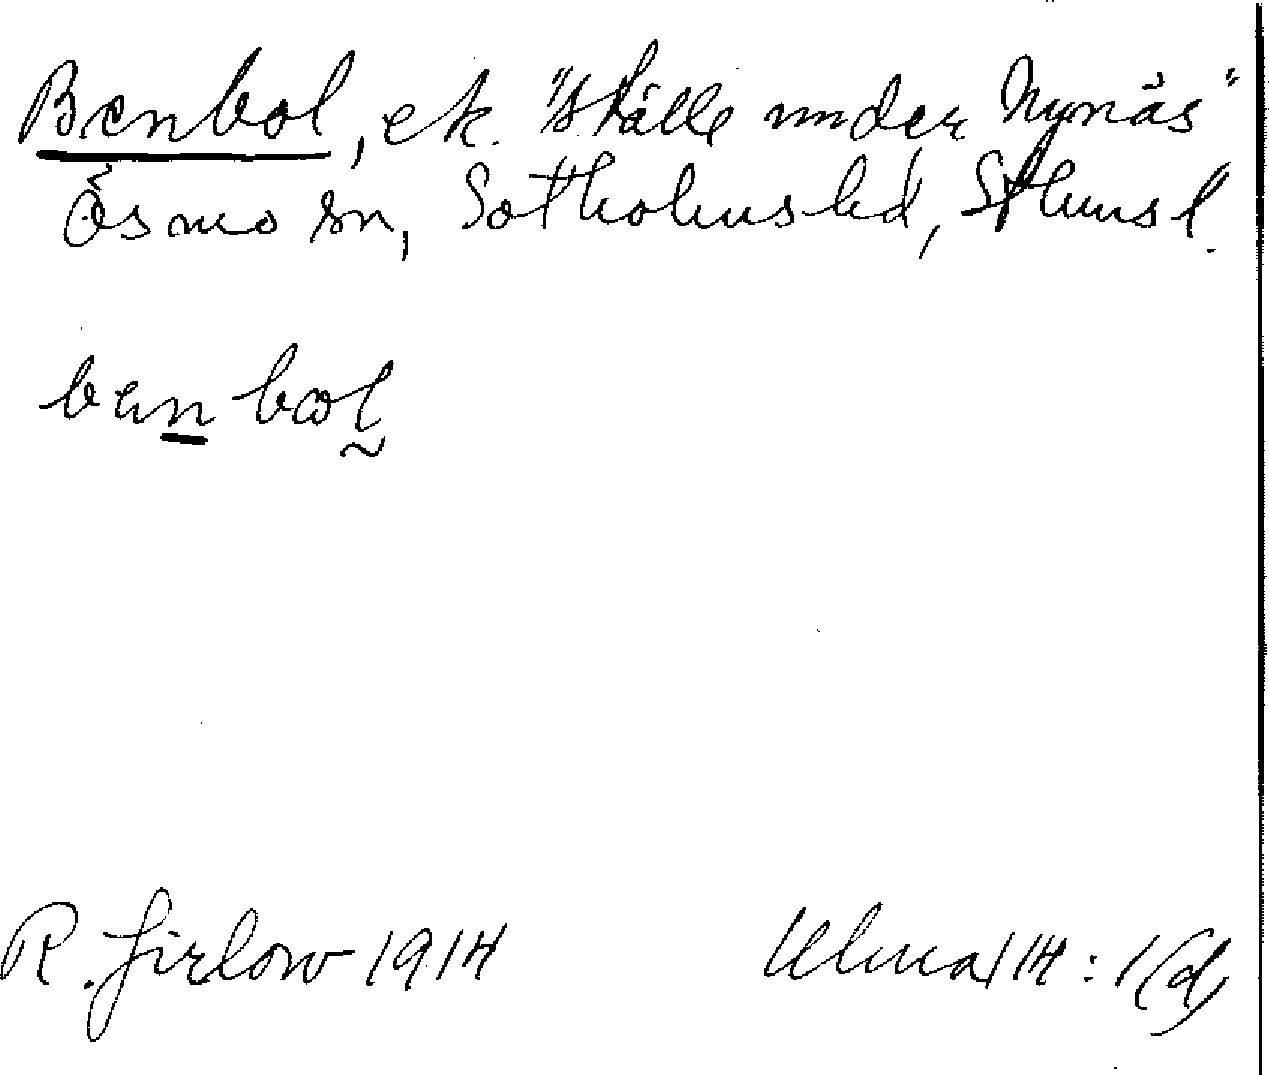 Benbol, ek. "ställe under Nynäs"
Ösmo sn, Sotholms hd, Sthms l.
benbol
R. Jirlow 1914
Ulma 114:1(d)